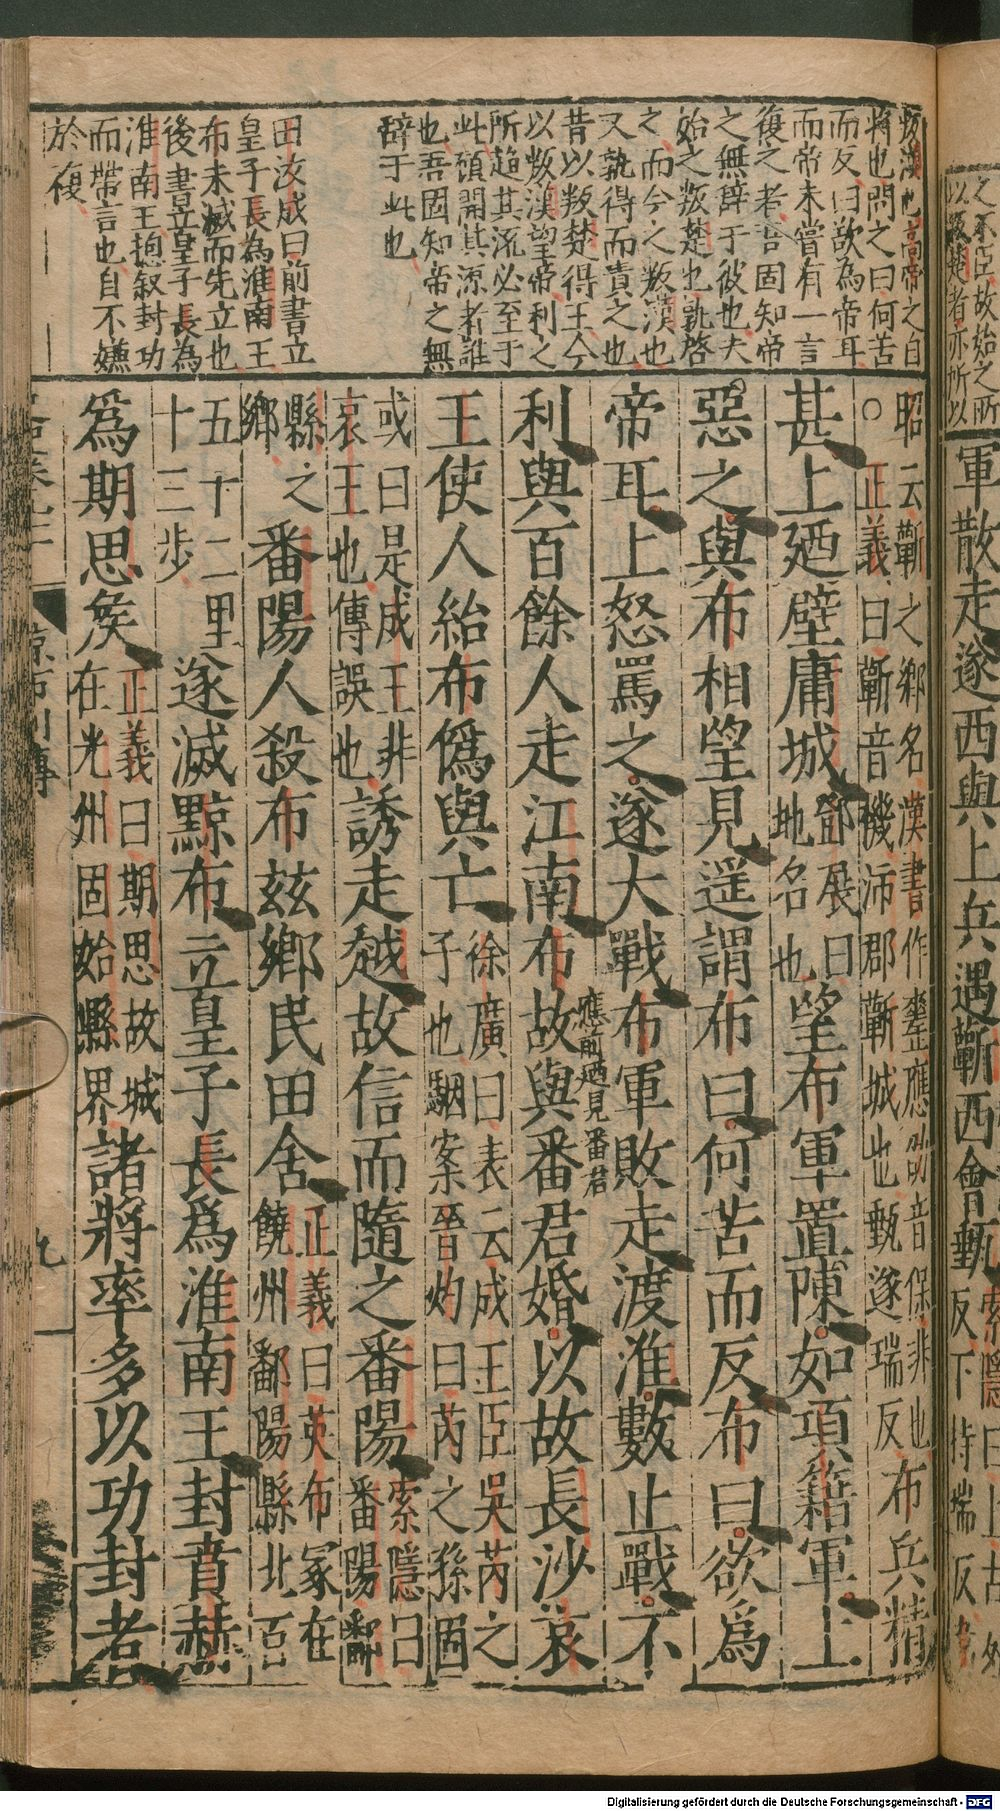 叛漢也高帝之自
將也問之曰何苦
而反曰欲為帝耳
而帝未嘗有一言
復之者吾固知帝
之無辭于彼也夫
始之叛楚也孰啓
之而今之叛漢也
又孰得而責之也
昔以叛楚得王今
以叛漢望帝利之
所趨其流必至于
此頭開其源者誰
也吾固知帝之無
辭于此也
田汝成曰前書立
皇子長為淮南王
布未滅而先立也
後書立皇子長為
淮南王揔叙封功
而帶言也自不嫌
於複
昭云蘄之鄉名漢書作䥏應劭音保非也
○正義曰蘄音機沛郡蘄城也甀逐瑞反
布兵精
甚上廼壁庸城
鄧展曰
地名也
望布軍置陳如項籍軍上
惡之與布相望見遥謂布曰何苦而反布曰欲為
帝耳上怒罵之遂大戰布軍敗走渡淮數止戰不
應前廼見番君
利與百餘人走江南布故與番君婚以故長沙哀
王使人紿布僞與亡
徐廣曰表云成王臣吳芮之
子也駰案晉灼曰芮之孫固
或曰是成王非
哀王也傳誤也
誘走越故信而隨之番陽
索隱曰
番陽鄱
縣之
鄉
番陽人殺布茲鄉民田舍
正義曰英布冢在
饒州鄱陽縣北百
五十二里
十三步
遂滅黥布立皇子長爲淮南王封賁赫
爲期思矦
正義曰期思故城
在光州固始縣界
諸將率多以功封者
九
之不臣故始之所
以叛楚者亦所以
軍散走遂西與上兵遇蘄西會甀
反下持瑞反
Digitalisierung gefördert durch die Deutsche Forschungsgemeinschaft - DFG